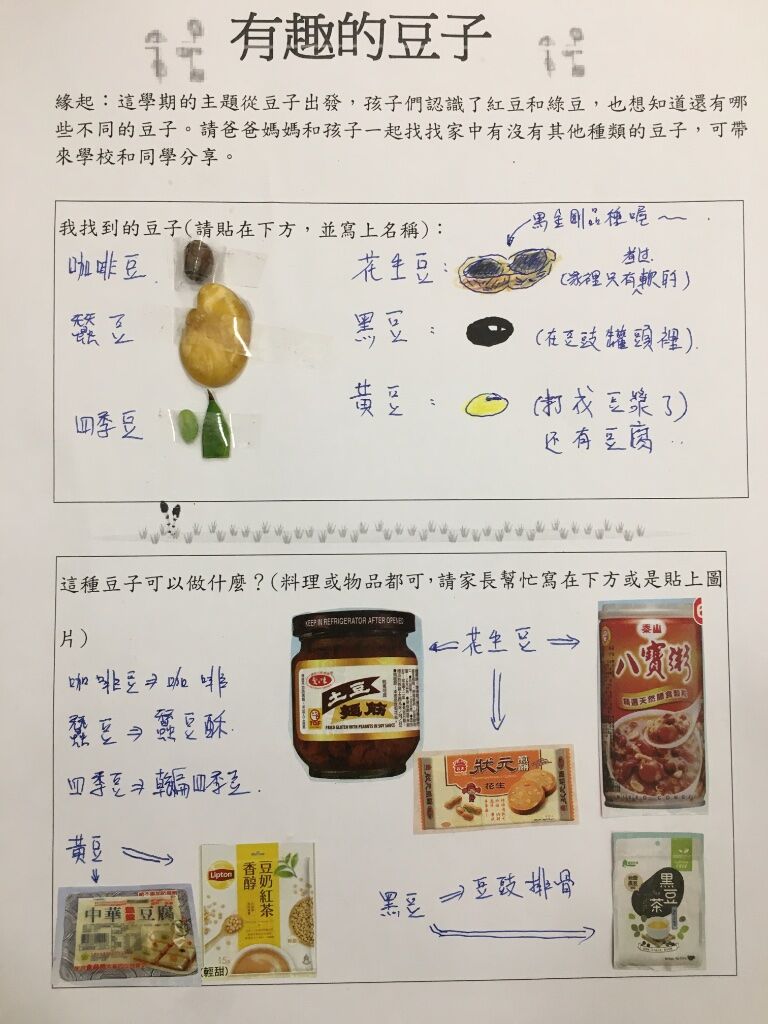 有趣的豆子
緣起：這學期的主題從豆子出發，孩子們認識了紅豆和綠豆，也想知道還有哪
些不同的豆子。請爸爸媽媽和孩子一起找找家中有沒有其他種類的豆子，可帶
來學校和同學分享。
我找到的豆子(請貼在下方，並寫上名稱)：
黑金剛品種喔～
咖啡豆
花生豆：
煮过
(家裡只有軟的)
蠶豆
黑豆：
(在豆豉罐頭裡)
四季豆
黃豆：
(打成豆漿了)
还有豆腐..
這種豆子可以做什麼？(料理或物品都可，請家長幫忙寫在下方或是貼上圖
片)
咖啡豆⇒咖啡
蠶豆⇒蠶豆酥
四季豆⇒乾扁四季豆
黃豆
花生豆
黑豆⇒豆豉排骨
KEEP IN REFRIGERATOR AFTER OPENED
土豆
麵筋
FRIED GLUTEN WITH PEANUTS IN SOY SAUCE
TGF
泰山
八寶粥
精選天然膳食穀粒
MIXED CONGEE
狀元
煎餅
花生
中華
豆腐
Lipton
香醇
豆奶紅茶
(輕甜)
黑豆
茶